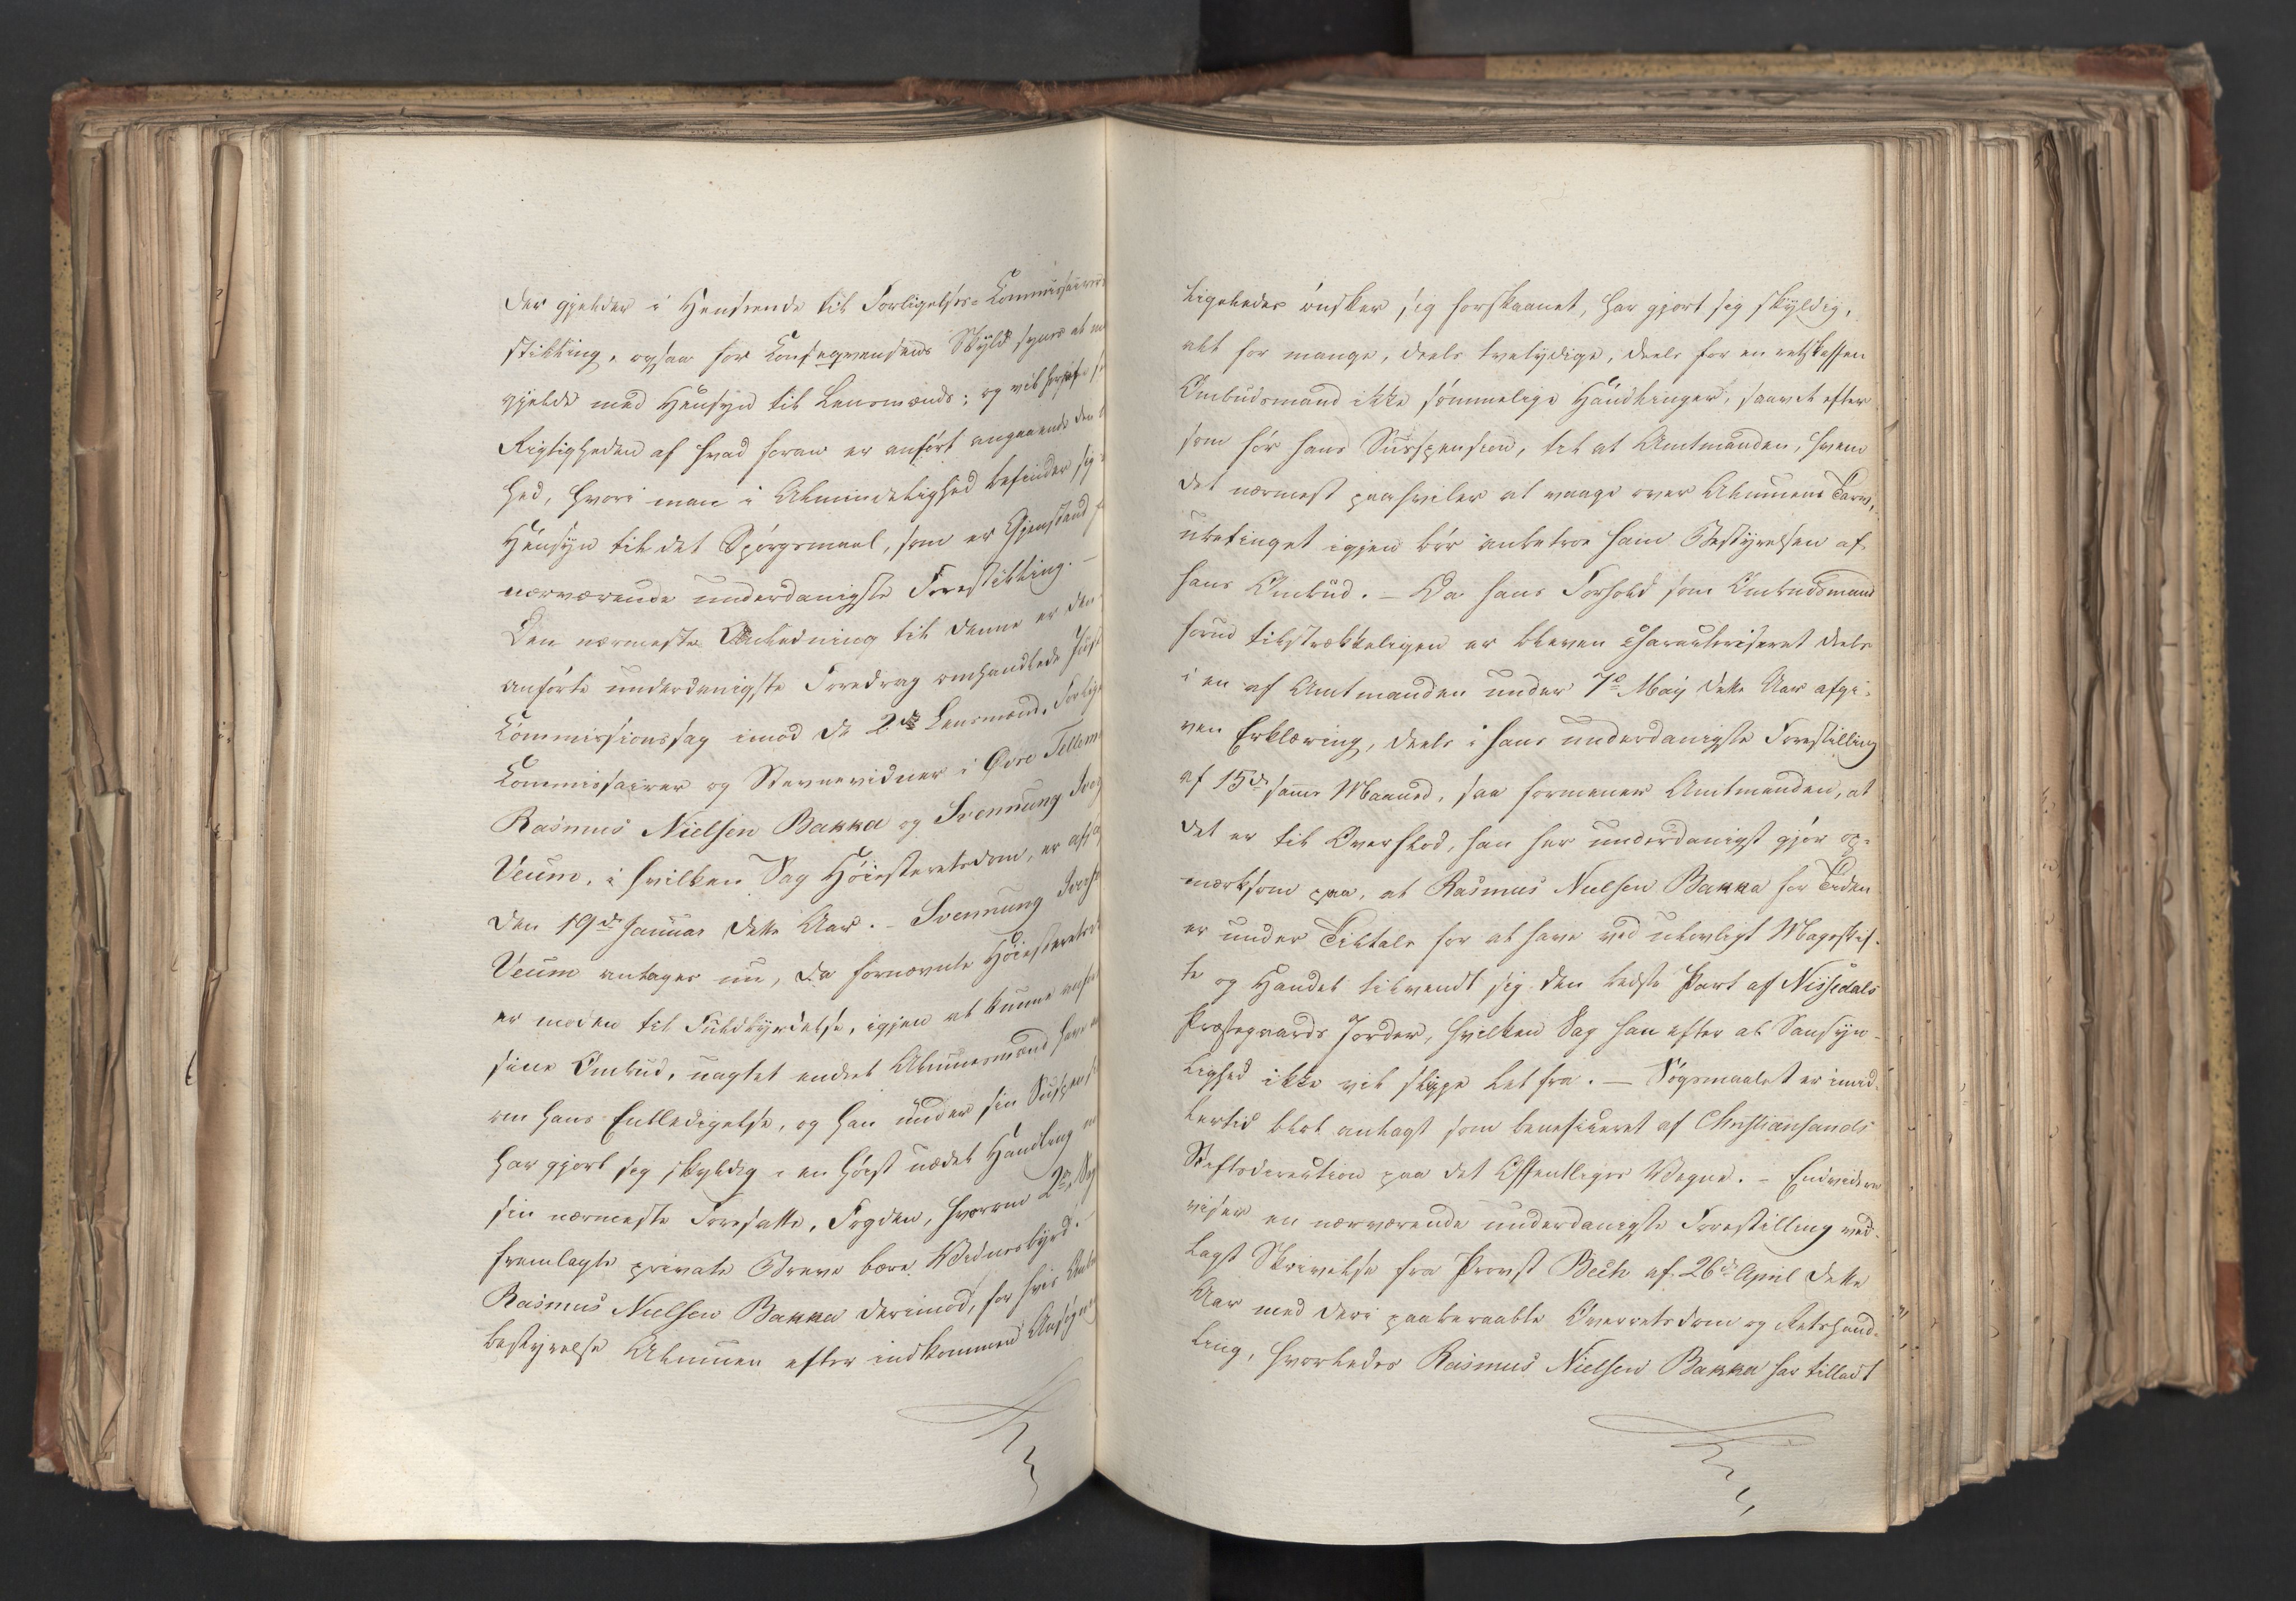 der gjelder i Henseende til Forligelses-Commissairers
stilling, ogsaa for Consequensens Skyld synes at
gjelde med Hensyn til Lensmænds; og vil
Rigtigheden af hvad foran er anført angaaende den
hed, hvori man i Almindelighed befinder sig
Hensyn til det Spørgsmaal, som er Gjenstand
nærværende underdanigste Forestilling. –
Den nærmeste Anledning til denne er den
anførte underdanigste Foredrag omhandlede
Commissionssag imod de 2de Lensmænd,
Commissairer og Stævnevidner i Øvre
Rasmus Nielsen Bakka og Svennung
Veum, i hvilken Sag Høiesteretsdom, er
den 19de Januar dette Aar. – Svennung
Veum antages nu, da fornævnte
er moden til Fuldbyrdelse, igjen at kunne
sine Ombud, uagtet endeel Almuesmænd have
om hans Entledigelse, og han under sin
har gjort sig skyldig i en høist uædel Handling
sin nærmeste Foresatte, Fogden, hvorom 2de
fremlagte private Breve bære Vidnesbyrd.
Rasmus Nielsen Bakka derimod, for hvis
bestyrelse Almuen efter indkommen
ligeledes ønsker sig forskaanet, har gjort sig skyldig,
alt for mange, deels tvetydige, deels for en retskaffen
Ombudsmand ikke sømmelige Handlinger, saavel efter
som før hans Suspension, til at Amtmanden, hvem
det nærmest paahviler at vaage over Almuens Tarv,
ubetinget igjen bør anbetroe ham Bestyrelsen af
hans Ombud. – Da hans Forhold som Ombudsmand
forud tilstrækkeligen er bleven characteriseret deels
i en af Amtmanden under 7de May dette Aar afgi-
ven Erklæring, deels i hans underdanigste Forestilling
af 15de samme Maaned, saa formener Amtmanden, at
det er til Overflod, han her underdanigst gjør op-
mærksom paa, at Rasmus Nielsen Bakka for Tiden
er under Tiltale for at have ved ulovligt Mageskif-
te og Handel tilvendt sig den bedste Part af Nissedals
Præstegaards Jorder, hvilken Sag han efter al Sandsyn-
lighed ikke vil slippe let fra. – Søgsmaalet er imid-
lertid blot anlagt som beneficeret af Christiansands
Stiftsdirection paa det Offentliges Vegne. – Endvidere
viser en nærværende underdanigste Forestilling ved-
lagt Skrivelse fra Provst Bech af 26de April dette
Aar med deri paaberaabte Overretsdom og Retshand-
ling, hvorledes Rasmus Nielsen Bakka har tilladt